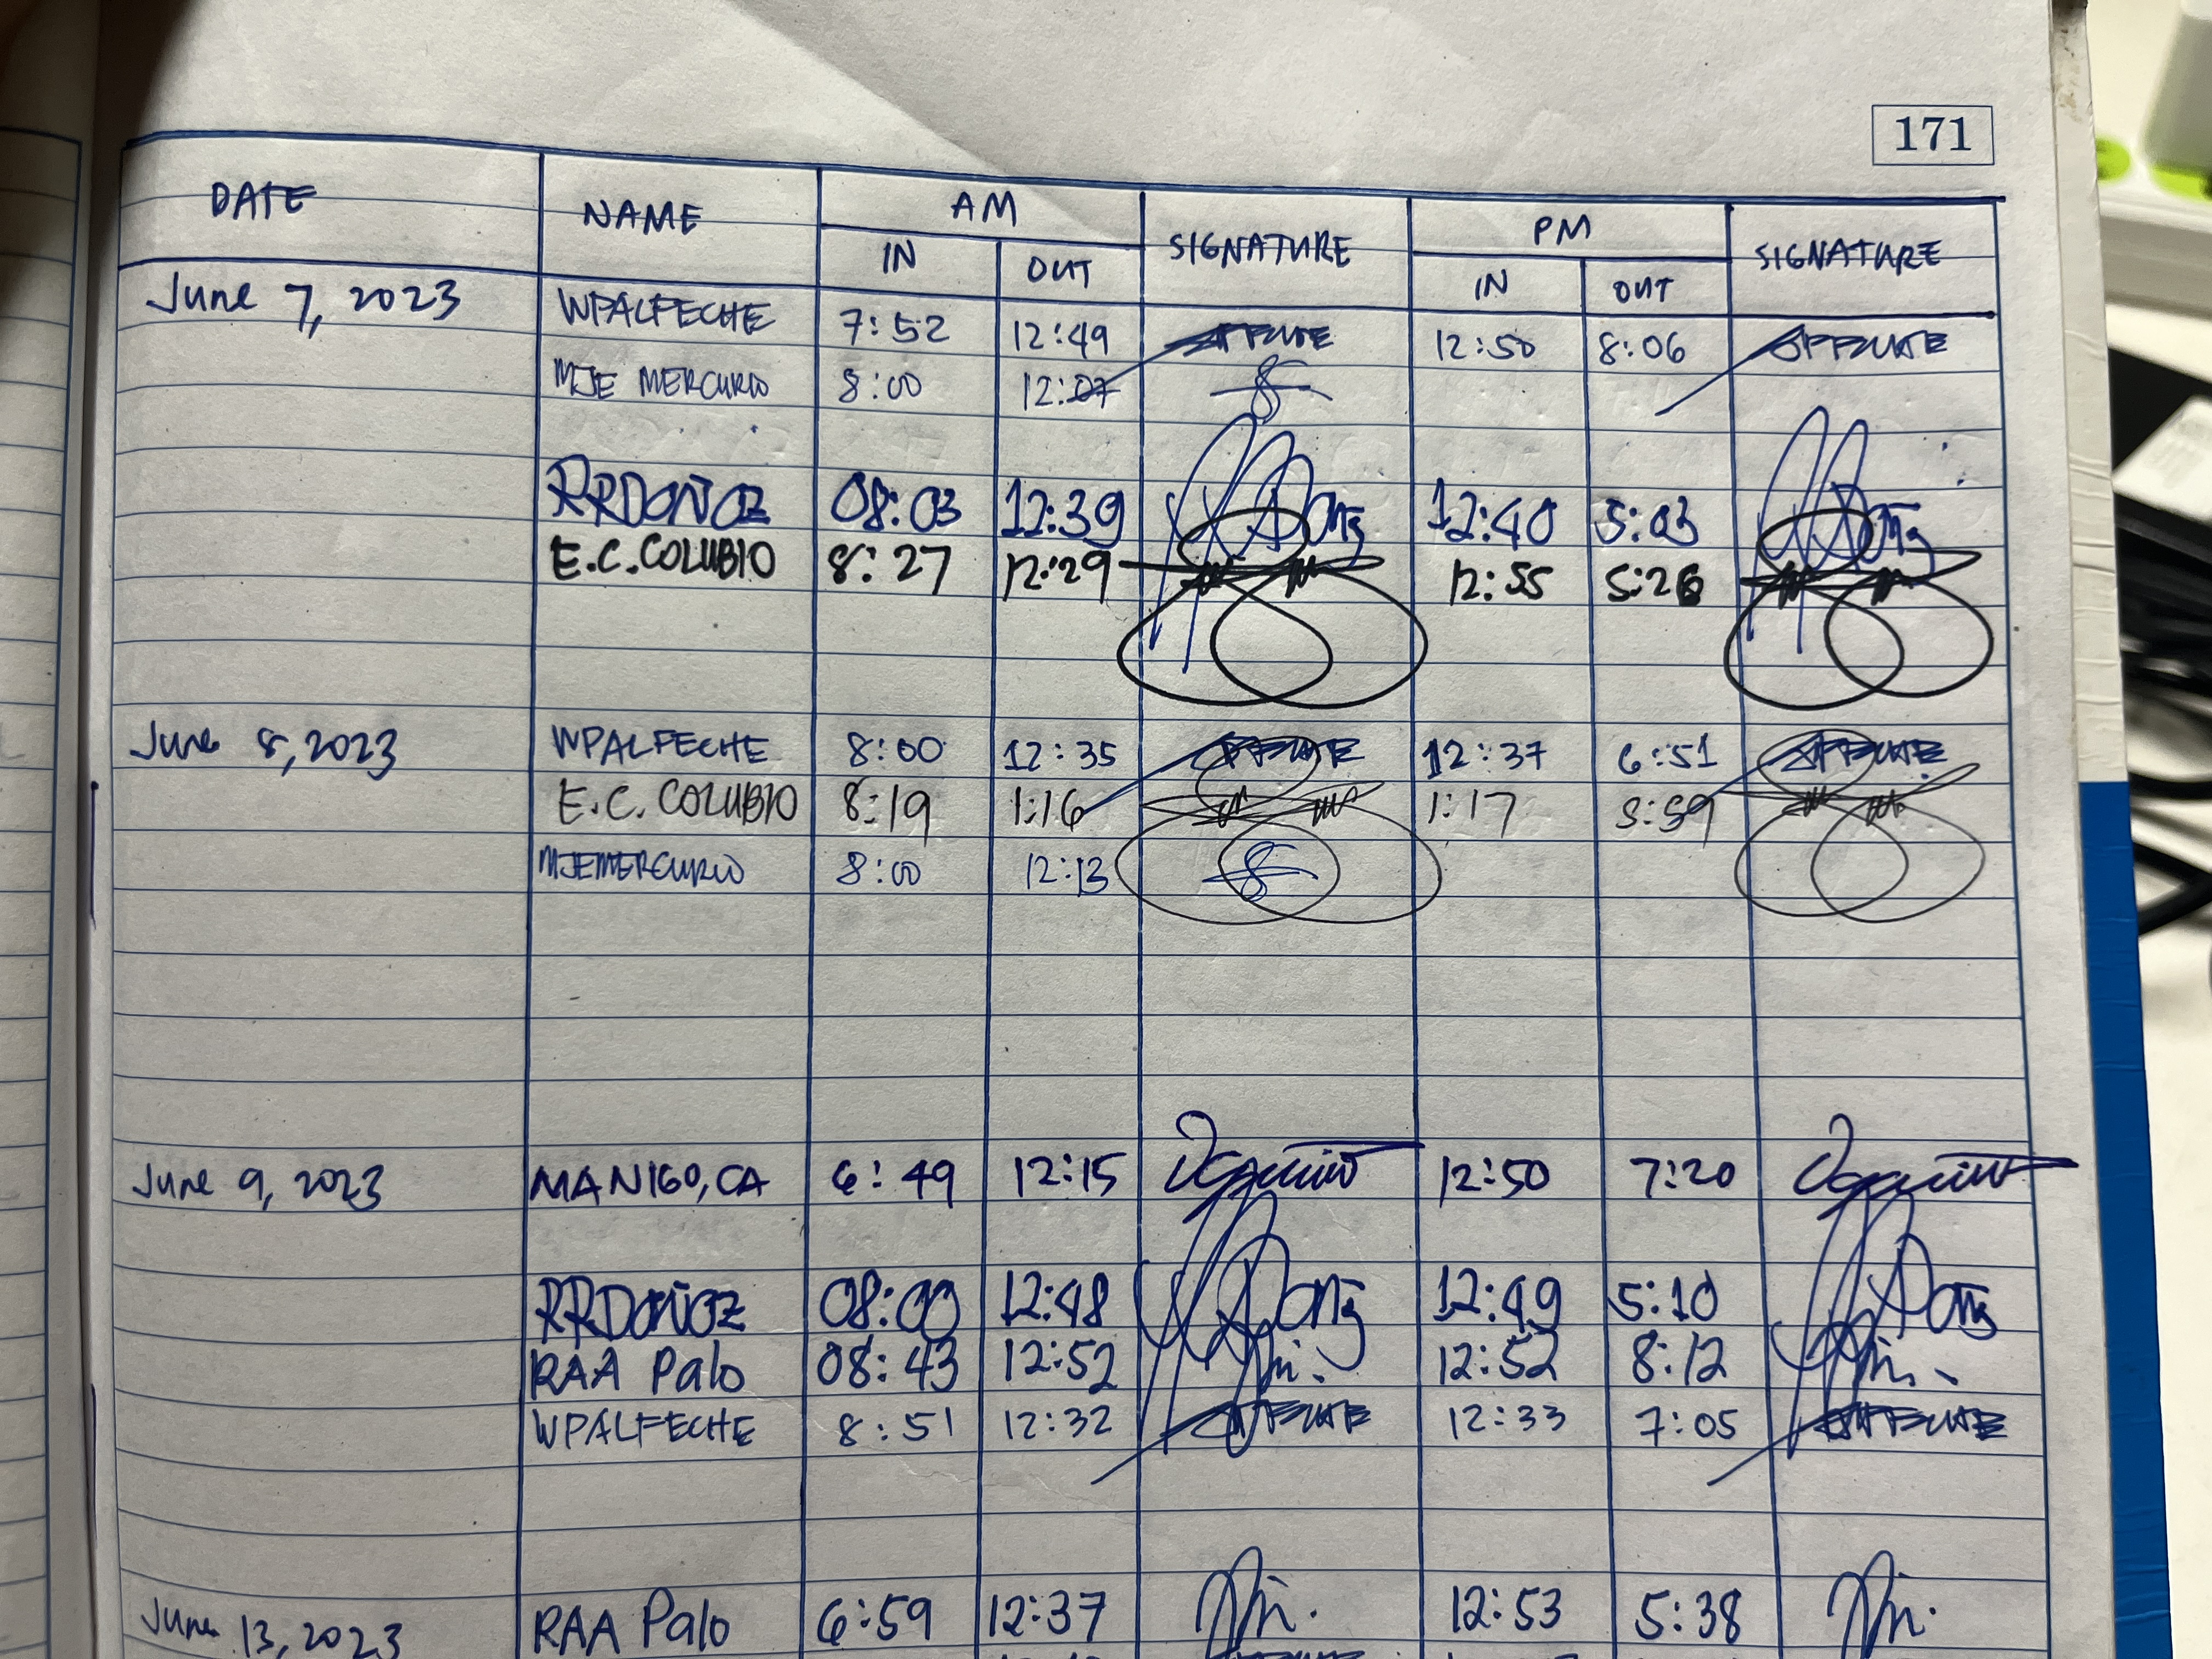 171
DATE NAME AM SIGNATURE PM SIGNATURE
IN OUT IN OUT
June 7, 2023 WPALFECHE 7:52 12:49 12:50 8:06
MJE MERCURIO 8:00 12:07
RRDOÑOZ 08:03 12:39 12:40 5:03
E.C. COLUBIO 8:27 12:29 12:55 5:26
June 8, 2023 WPALFECHE 8:00 12:35 12:37 6:51
E.C. COLUBIO 8:19 1:16 1:17 5:59
MJEMERCURIO 8:00 12:13
June 9, 2023 MANIGO, CA 6:49 12:15 12:50 7:20
RRDOÑOZ 08:00 12:48 12:49 5:10
RAA Palo 08:43 12:52 12:52 8:12
WPALFECHE 8:51 12:32 12:33 7:05
June 13, 2023 RAA Palo 6:59 12:37 12:53 5:38